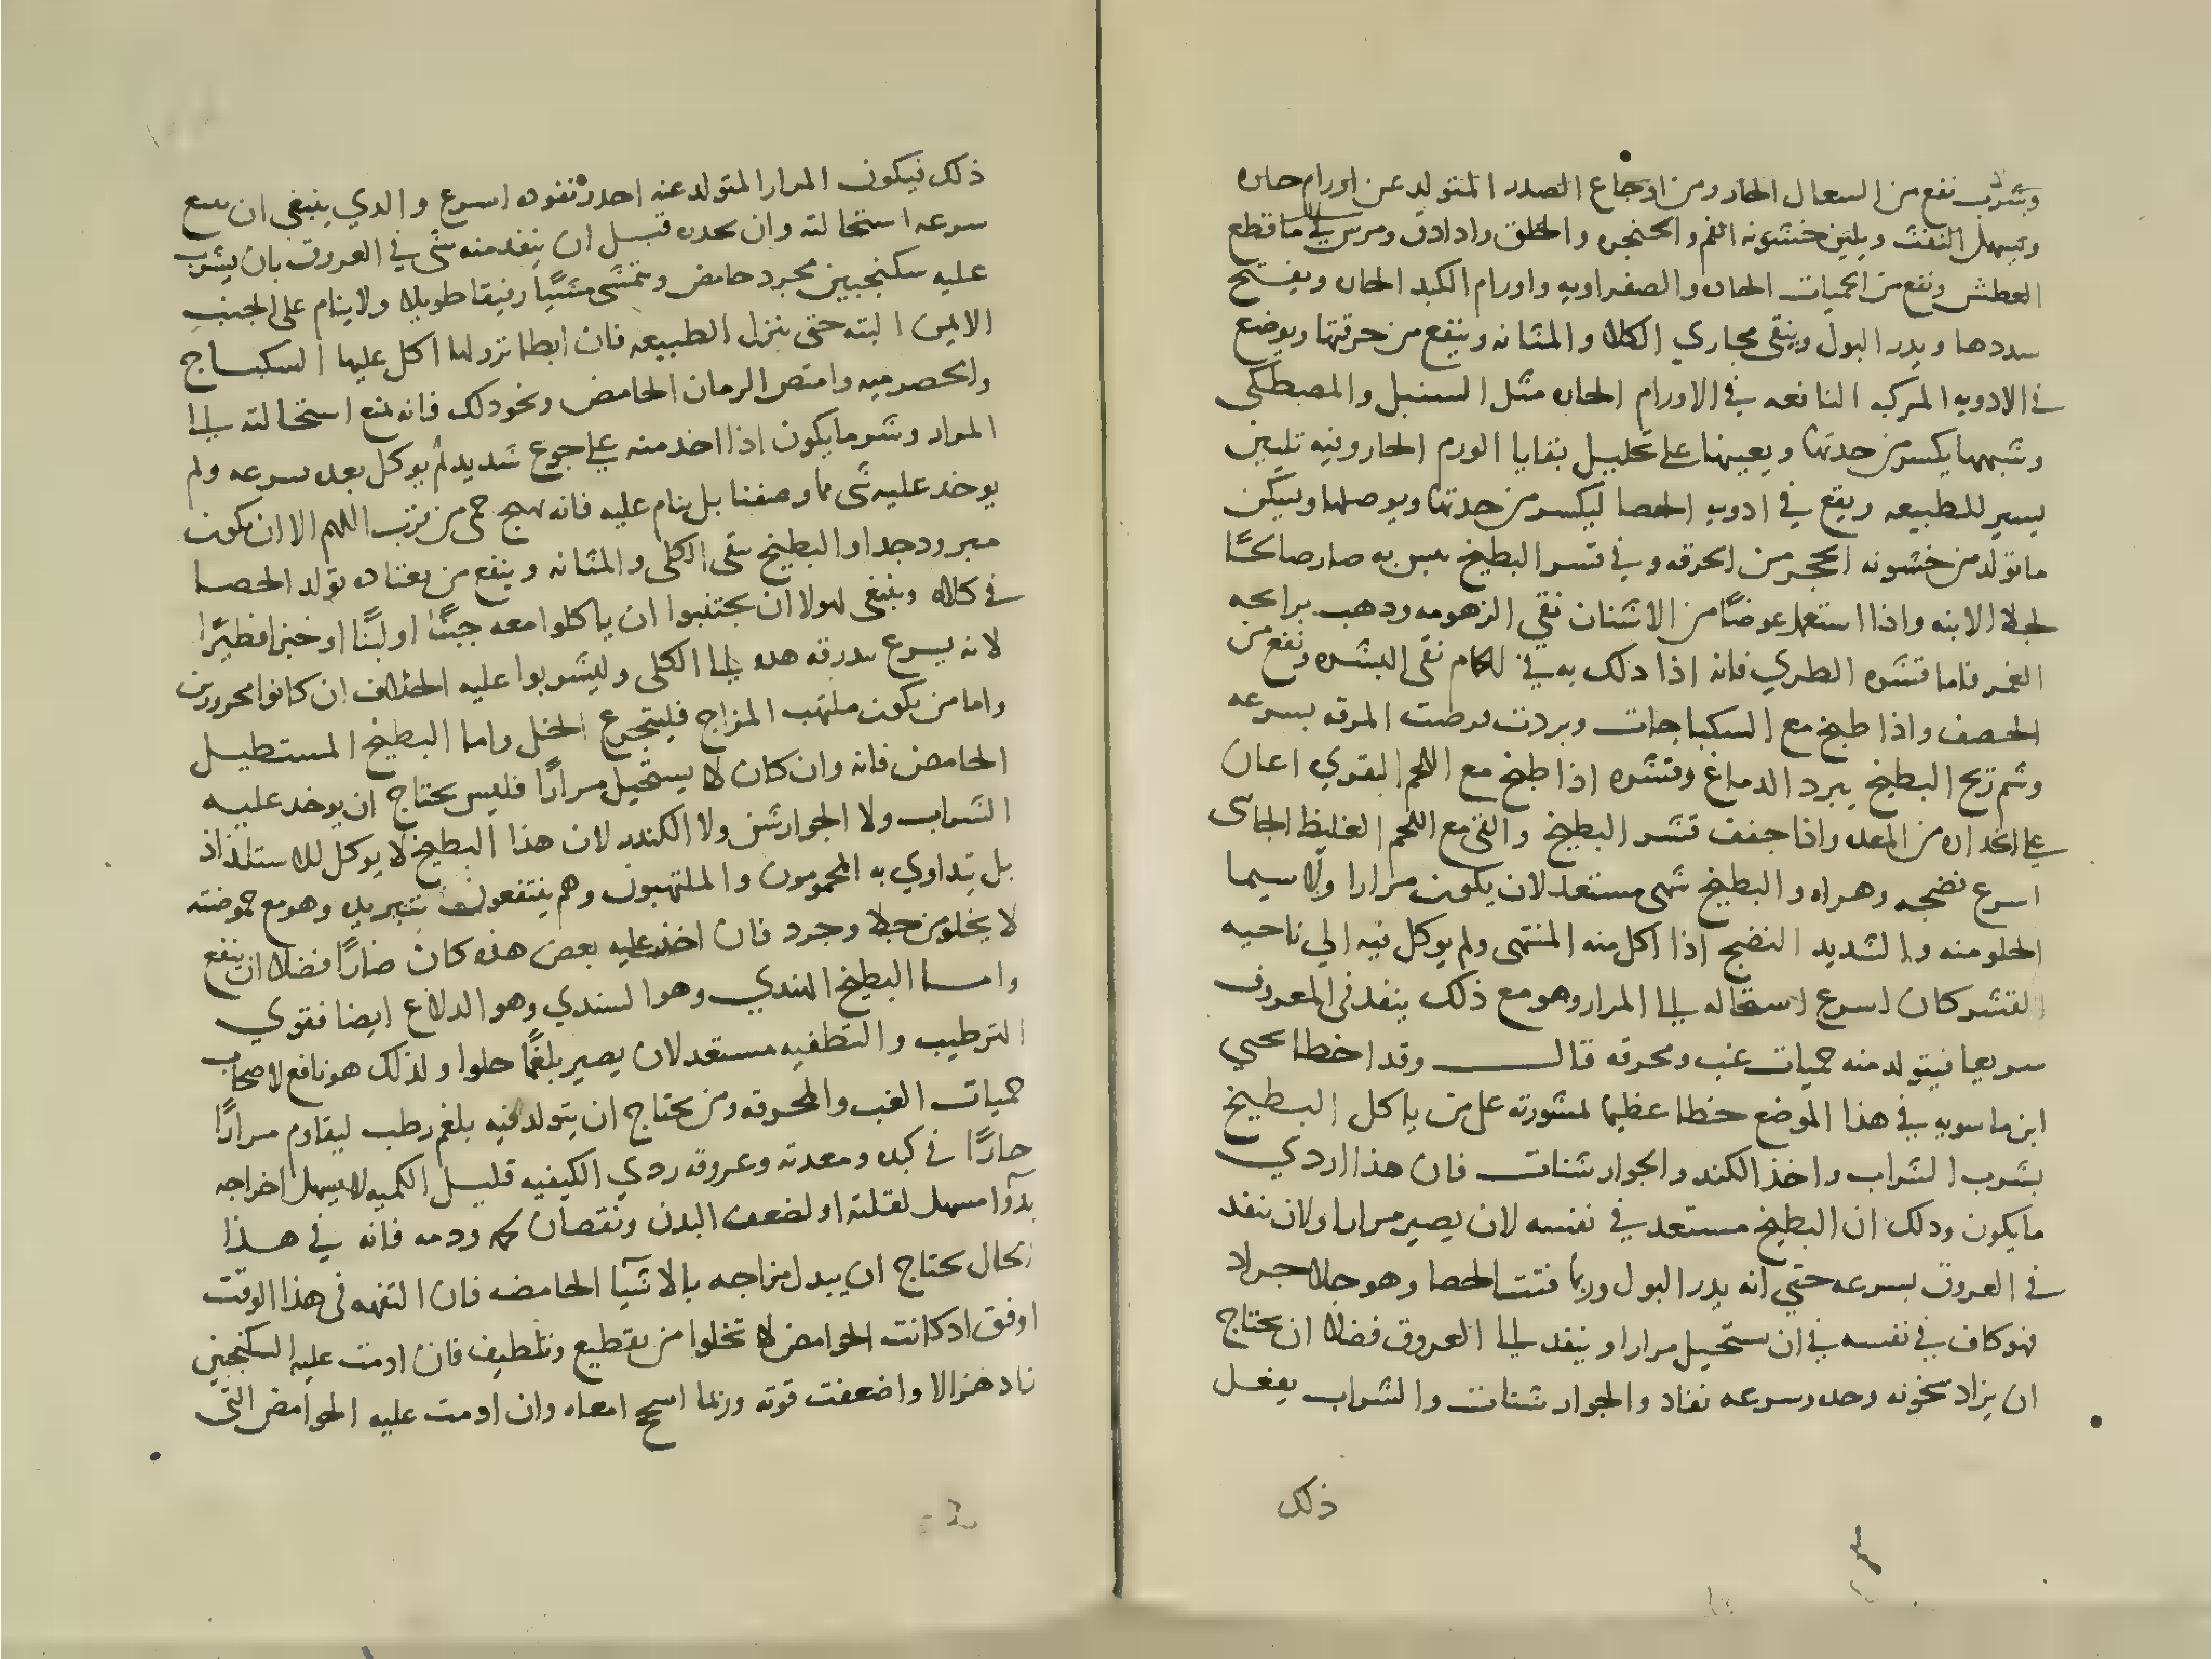 وبشرب نفع من السعال الحار ومن اوجاع الصدر المتولد عن اورام حاره
وتسهل النفث ويلين خشونه الفم والحنجره والحلق واذا دق ومرس في ما قطع
العطش ونفع من الحميات الحاده والصفراويه واورام الكبد الحاره ويفتح
سددها ويدر البول وينقى مجاري الكلا والمثانه وينفع من حرقتها ويوضع
في الادويه المركبه النافعه في الاورام الحاره مثل السنبل والمصطكى
وشبهها يكسر من حدتها ويعينها على تحليل بقايا الورم الحار وفيه تليين
يسير للطبيعه ويقع في ادويه الحصا ليكسر من حدتها ويوصلها ويسكن
ما تولد من خشونه الحجر من الحرقه وفي قشر البطيخ يبس به صار صالحًا
لجلا الابنه واذا استعمل عوضًا من الاشنان نقي الزهومه وذهب برايحه
الغمر فاما قشره الطري فانه اذا دلك به في الحمام نقى البشره ونفع من
الحصف واذا طبخ مع السكباجات وبردت المرقه بسرعه
وشم ريح البطيخ يبرد الدماغ وقشره اذا طبخ مع اللحم البقري اعان
على انحداره من المعده واذا جفف قشر البطيخ والقي مع اللحم الغليظ الجاسى
اسرع نضجه وهراه والبطيخ شهى مستعد لان يكون مرارا ولا سيما
الحلو منه والشديد النضج اذا اكل منه المنتهى ولم يوكل فيه الي ناحيه
القشر كان اسرع استحاله الي المرار وهو مع ذلك ينفد في العروق
سريعا فيتولد منه حميات غب ومحرقه قال وقد اخطا يحيي
ابن ماسويه في هذا الموضع خطا عظيما لمشورته على من ياكل البطيخ
بشرب الشراب واخذ الكندر والجوارشنات فان هذا اردي
ما يكون وذلك ان البطيخ مستعد في نفسه لان يصير مرارا ولان ينفد
في العروق بسرعه حتي انه يدر البول وربما فتت الحصا وهو جلا جراد
فهو كاف في نفسه في ان يستحيل مرارا وينفد الي العروق فضلا ان يحتاج
ان يزاد سخونه وحده وسرعه نفاد والجوارشنات والشراب يفعل
ذلك
ذلك فيكون المرار المتولد عنه احد ونفوده اسرع والذي ينبغي ان يمنع
سرعه استحالته وان يحدره قبل ان ينفد منه شى في العروق بان يشرب
عليه سكنجبين مجرد حامض ويتمشى مشيًا رفيقا طويلا ولا ينام على الجنب
الايمن البته حتى ينزل الطبيعه فان ابطا نزولها اكل عليها السكباج
والحصرميه وامتص الرمان الحامض ونحو ذلك فانه يمنع استحالته الي
المرار وشر ما يكون اذا اخذ منه على جوع شديد لم يوكل بعده بسرعه ولم
يوخذ عليه شى مما وصفنا بل ينام عليه فانه يهيج حمى من قرب اللهم الا ان يكون
مبرود جدا والبطيخ ينقى الكلى والمثانه وينفع من يعتاده تولد الحصا
في كلاه وينبغي لهولا ان يجتنبوا ان ياكلوا معه جبنًا او لبنًا او خبزا فطيرًا
لانه يسرع بدرقه هذه الي الكلى وليشربوا عليه الجلاب ان كانوا محرورين
واما من يكون ملتهب المزاج فليتجرع الخل واما البطيخ المستطيل
الحامض فانه وان كان لا يستحيل مرارًا فليس يحتاج ان يوخذ عليه
الشراب ولا الجوارشن ولا الكندر لان هذا البطيخ لا يوكل للاستلذاذ
بل يتداوي به المحمومون والملتهبون وهم ينتفعون بتبريده وهو مع حموضته
لا يخلو من جلا وجرد فان اخذ عليه بعض هذه كان ضارًا فضلا ان ينفع
واما البطيخ الهندي وهو السندي وهو الدلاع ايضا فقوي
الترطيب والتطفيه مستعد لان يصير بلغمًا حلوا ولذلك هو نافع لاصحاب
حميات الغب والمحرقه ومن يحتاج ان يتولد فيه بلغم رطب ليقاوم مرارًا
حارًا في كبده ومعدته وعروقه ردي الكيفيه قليل الكميه لا يسهل اخراجه
بدوا مسهل لقلته او لضعف البدن ونقصان لحمه ودمه فانه في هذا
الحال يحتاج ان يبدل مزاجه بالاشيا الحامضه فان التفهه في هذا الوقت
اوفق اذ كانت الحوامض لا تخلوا من تقطيع وتلطيف فان ادمت عليه السكنجبين
زاد هزالا واضعفت قوته وربما اسحج امعاه وان ادمت عليه الحوامض التى